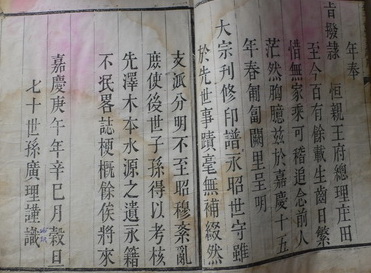 年奉
旨撥隸　恒親王府總理庄田
至今百有餘載生齒日繁
惜無家乘可稽追念前人
茫然胸臆兹於嘉慶十五
年春匍匐闕里呈明
大宗刊修印譜永昭世守雖
於先世事蹟毫無補綴然
支派分明不至昭穆紊亂
庶使後世子孫得以考核
先澤木本水源之遺永籍
不泯畧誌梗概餘俟將來
嘉慶庚午年辛巳月穀日
七十世孫廣理謹識